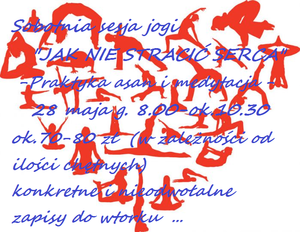 Sobotnia sesja jogi
"JAK NIE STRACIĆ SERCA"
-Praktyka asan i medytacja -
28 maja g. 8.00-ok.10.30
ok.70-80 zł (w zależności od
ilości chętnych)
konkretne i nieodwołalne
zapisy do wtorku ...